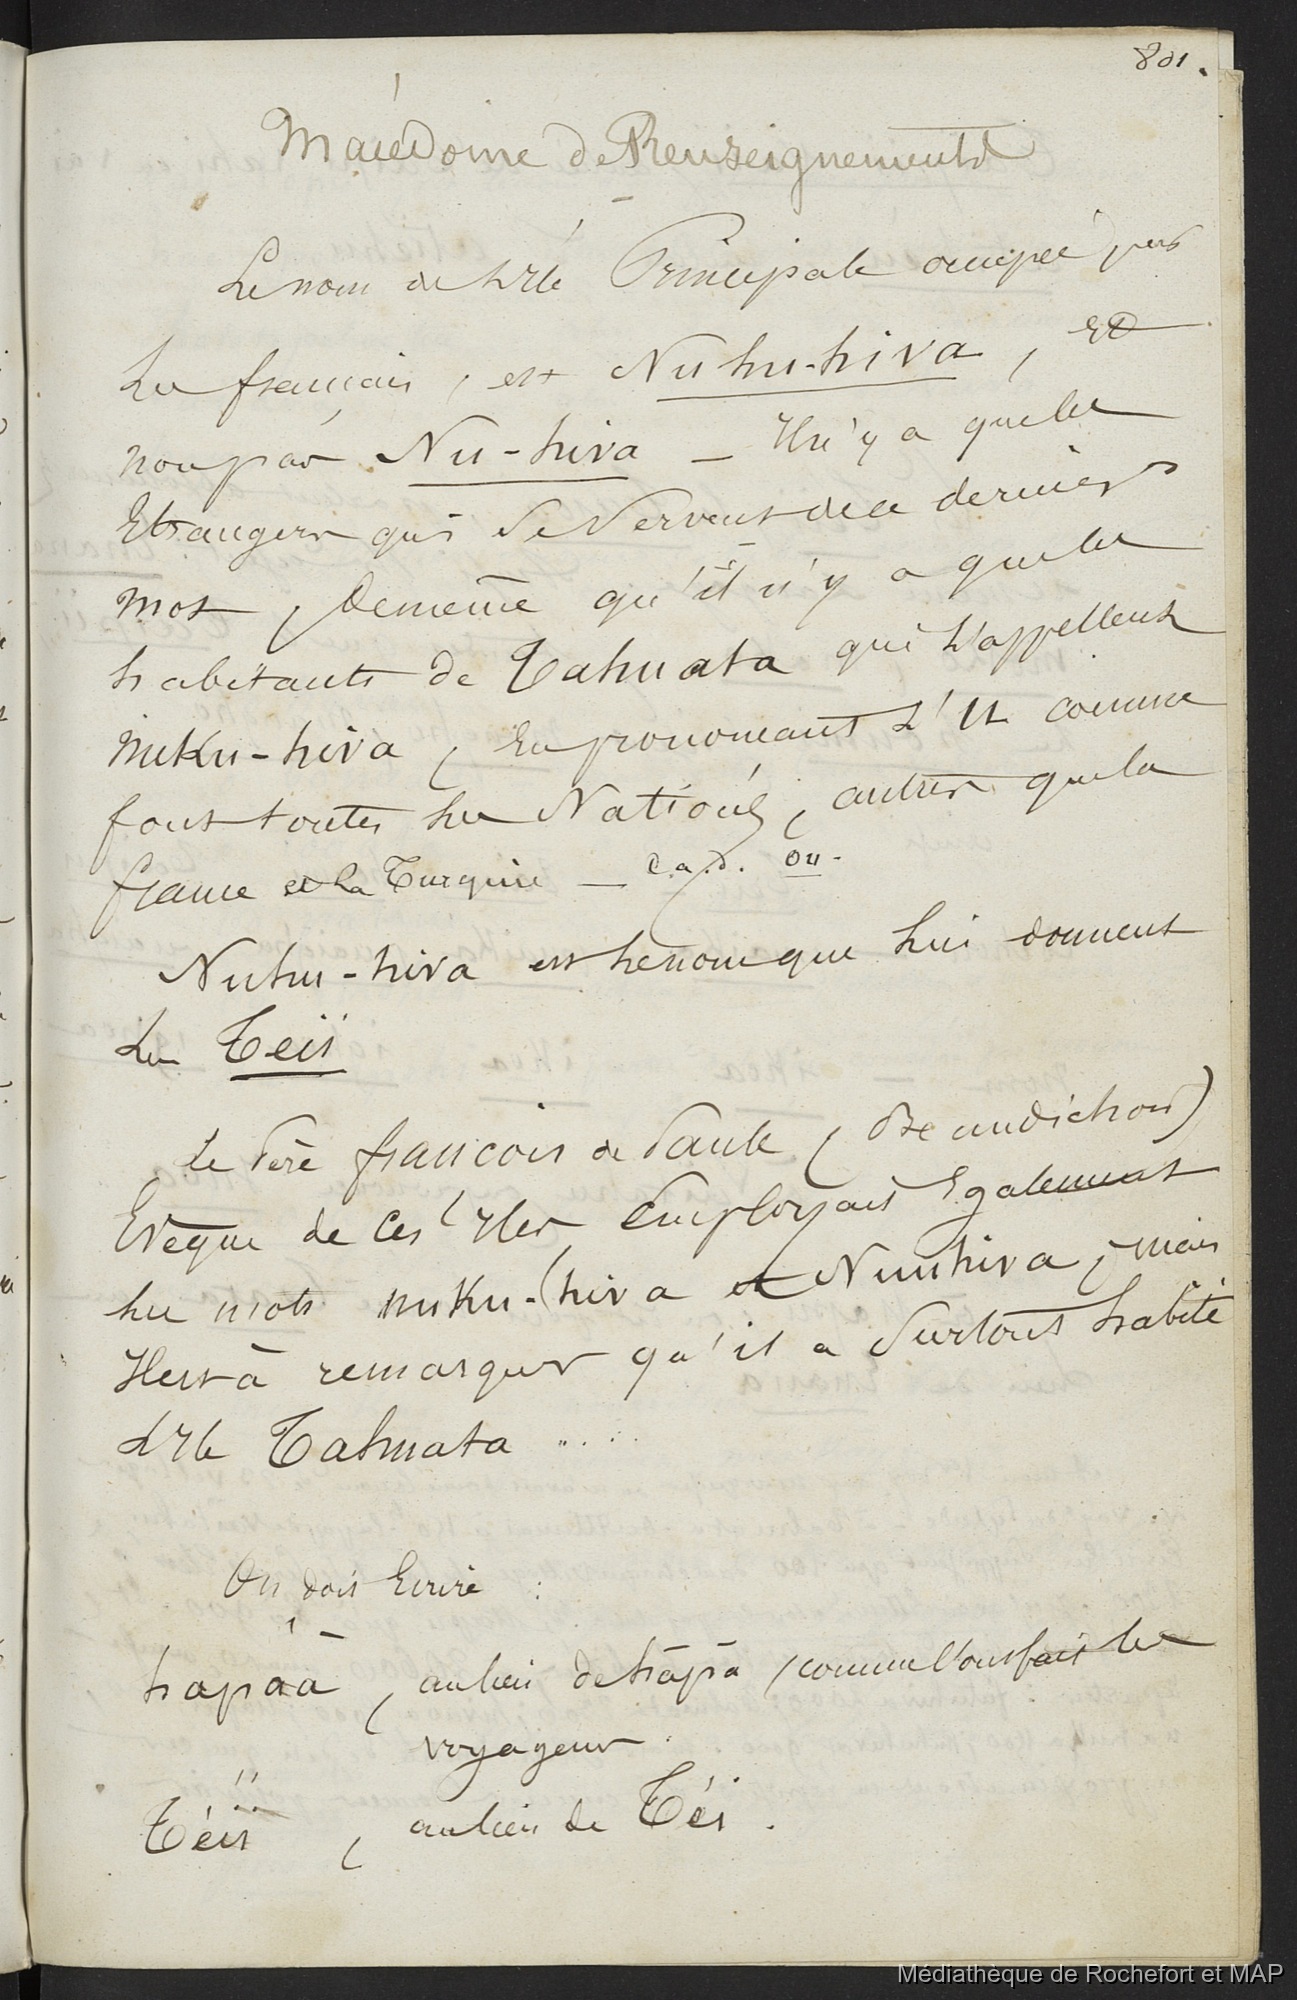 801.
Macédoine de Renseignements
Le nom de l'Ile Principale occupée par
les français, est Nuhu-hiva, Et
non pas Nu-hiva _ Il n'y a que les
Etrangers qui se servent de ce dernier
mot, Demême qu'il n'y a que les
habitants de Tahuata qui l'appellent
nuku-hiva, En prononcant l'u comme
font toutes les Nations, autres que la
france et la Turquie _ c.a.d. ou.
Nuhu-hiva est le nom que lui donnent
Les Teiï
Le Père francois de Paule (Beaudichon)
Evêque de Ces Iles Employait Egalement
les mots nuku-hiva et Nuuhiva, mais
Il est à remarquer qu'il a surtout habité
L'Ile Tahuata ....
On doit Ecrire :
hapaà, au lieu de hāpā, comme l'ont fait les
voyageurs.
Téiï, au lieu de Téi.
Médiathèque de Rochefort et MAP